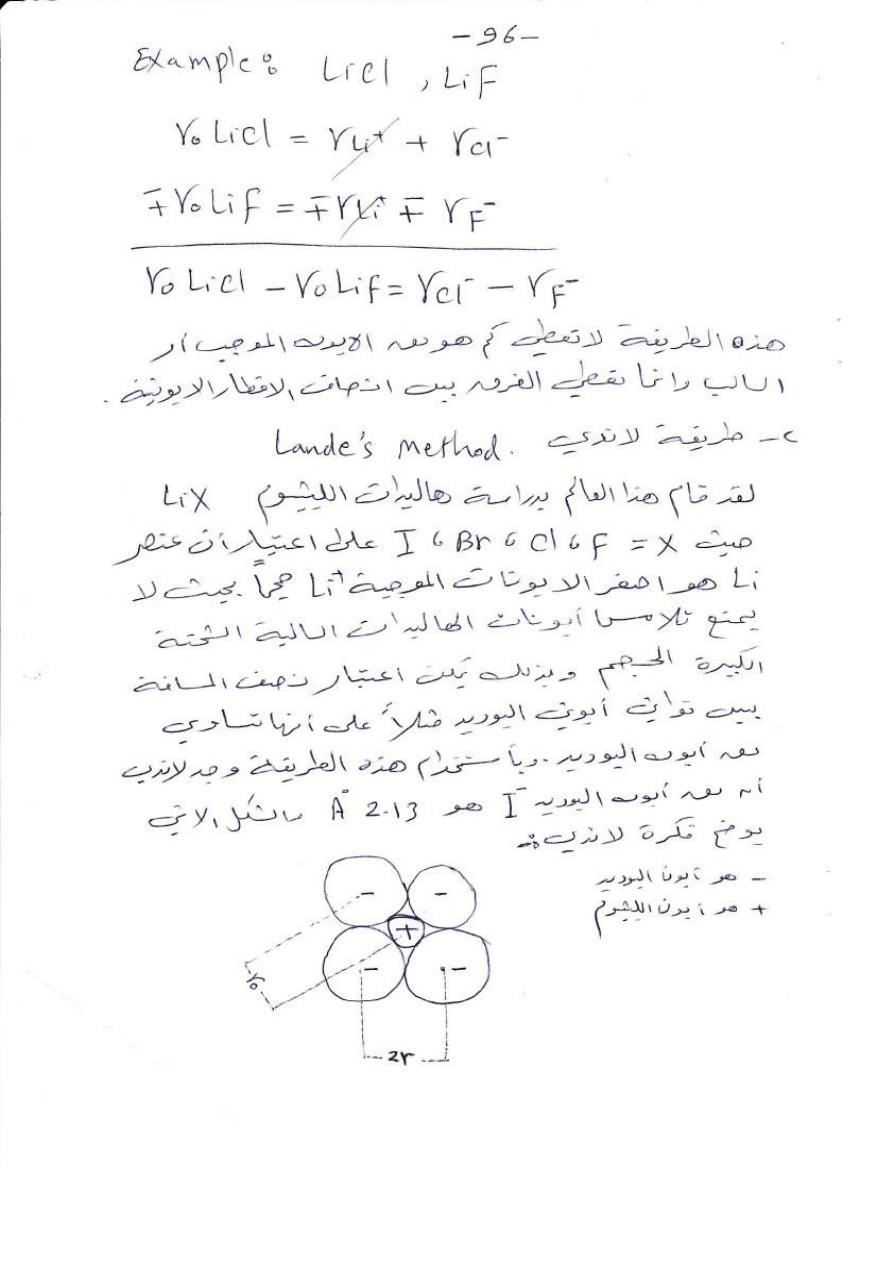 -96-
Example: LiCl , LiF
r₀ LiCl = rLi⁺ + rCl⁻
∓ r₀ LiF = ∓ rLi⁺ ∓ rF⁻
r₀ LiCl - r₀ LiF = rCl⁻ - rF⁻
هذه الطريقة لا تعطي كم هو نق الايون الموجب أو
السالب وانما تعطي الفرق بين انصاف الاقطار الايونية .
٢- طريقة لاندي Lande's Method.
لقد قام هذا العالم بدراسة هاليدات الليثيوم LiX
حيث X = F ، Cl ، Br ، I على اعتبار أن عنصر
Li هو اصغر الايونات الموجبة Li⁺ حجماً بحيث لا
يمنع تلامس أيونات الهاليدات السالبة الشحنة
الكبيرة الحجم وبذلك يمكن اعتبار نصف المسافة
بين نواتي أيوني اليوديد مثلاً على أنها تساوي
نق أيون اليوديد . وبأستخدام هذه الطريقة وجد لاندي
أن نق أيون اليوديد I⁻ هو 2.13 A° والشكل الاتي
يوضح فكرة لاندي :-
- هو أيون اليوديد
+ هو أيون الليثيوم
- -
+
- -
r₀
2r